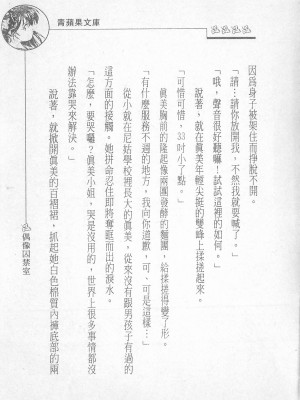 青蘋果文庫
因為身子被架住而掙脫不開。
「請…請你放開我，不然我就要喊了。」
「哦，聲音很好聽嘛，試試這裡的如何。」
說著，就在真美年輕尖挺的雙峰上揉搓起來。
「可惜可惜，33吋小了點。」
真美胸前的隆起像兩團發酵的麵團，給揉搓得變了形。
「有什麼服務不週的地方，我向你道歉，可、可是這樣…」
從小就在尼姑學校裡長大的真美，從來沒有跟男孩子有過的
這方面的接觸。她拼命忍住即將奪眶而出的淚水。
「怎麼，要哭囉？真美小姐，哭是沒用的，世界上很多事情都沒
辦法靠哭來解決。」
說著，就掀開真美的百褶裙，抓起她白色棉質內褲底部的兩
偶像囚禁室